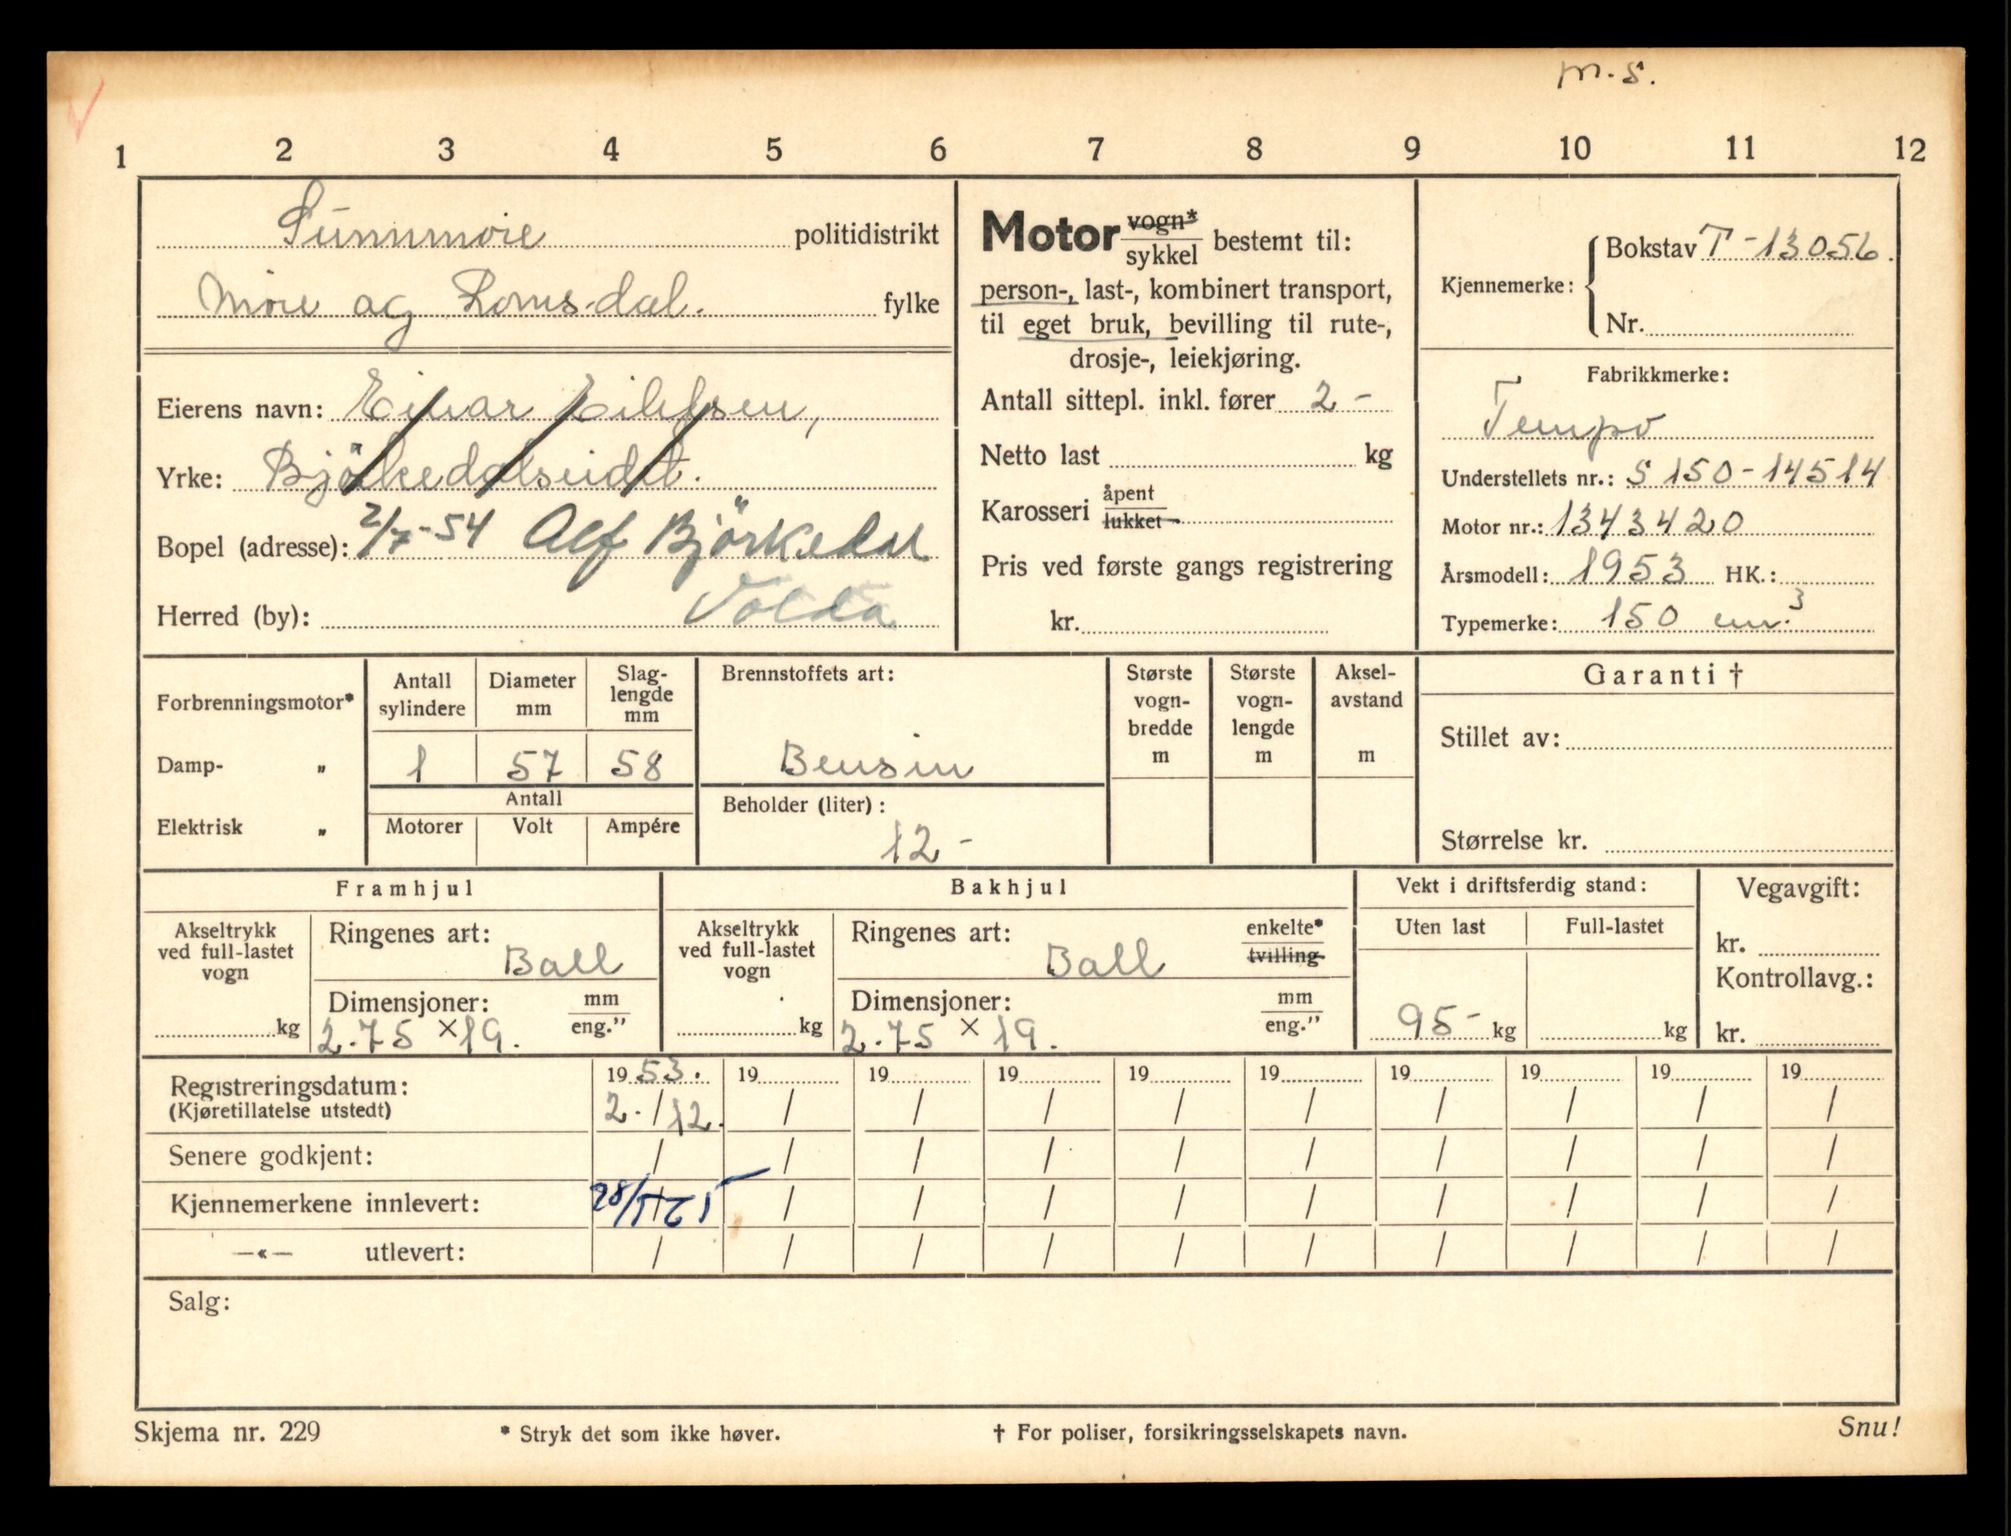 m.s.
1 2 3 4 5 6 7 8 9 10 11 12
Sunnmøre politidistrikt
Møre og Romsdal. fylke
Eierens navn: Einar Eilifsen,
Yrke: Björkedalseidet.
Bopel (adresse): 2/7-54 Alf Björkedal
Herred (by): Volda
Motor vogn* / sykkel bestemt til:
person-, last-, kombinert transport,
til eget bruk, bevilling til rute-,
drosje-, leiekjøring.
Antall sittepl. inkl. fører 2 -
Netto last kg
Karosseri åpent / lukket
Pris ved første gangs registrering
kr.
Kjennemerke: Bokstav T-13056.
Nr.
Fabrikkmerke:
Tempo
Understellets nr.: S 150-14514
Motor nr.: 1343420
Årsmodell: 1953 HK.:
Typemerke: 150 cm.3
Forbrenningsmotor*
Damp- „
Elektrisk „
Antall sylindere Diameter mm Slag-lengde mm
1 57 58
Antall
Motorer Volt Ampére
Brennstoffets art:
Bensin
Beholder (liter):
12 -
Største vogn-bredde m
Største vogn-lengde m
Aksel-avstand m
Garanti †
Stillet av:
Størrelse kr.
Framhjul
Akseltrykk ved full-lastet vogn kg
Ringenes art: Ball
Dimensjoner: mm / eng."
2.75 x 19.
Bakhjul
Akseltrykk ved full-lastet vogn kg
Ringenes art: Ball enkelte* / tvilling
Dimensjoner: mm / eng."
2.75 x 19.
Vekt i driftsferdig stand:
Uten last Full-lastet
95- kg kg
Vegavgift:
kr.
Kontrollavg.:
kr.
Registreringsdatum: 19 53. 19 19 19 19 19 19 19 19 19
(Kjøretillatelse utstedt) 2. / 12. / / / / / / / / /
Senere godkjent: / / / / / / / / / /
Kjennemerkene innlevert: / / / / / / / / /
—«— utlevert: / / / / / / / / / /
Salg:
Skjema nr. 229 * Stryk det som ikke høver. † For poliser, forsikringsselskapets navn. Snu!